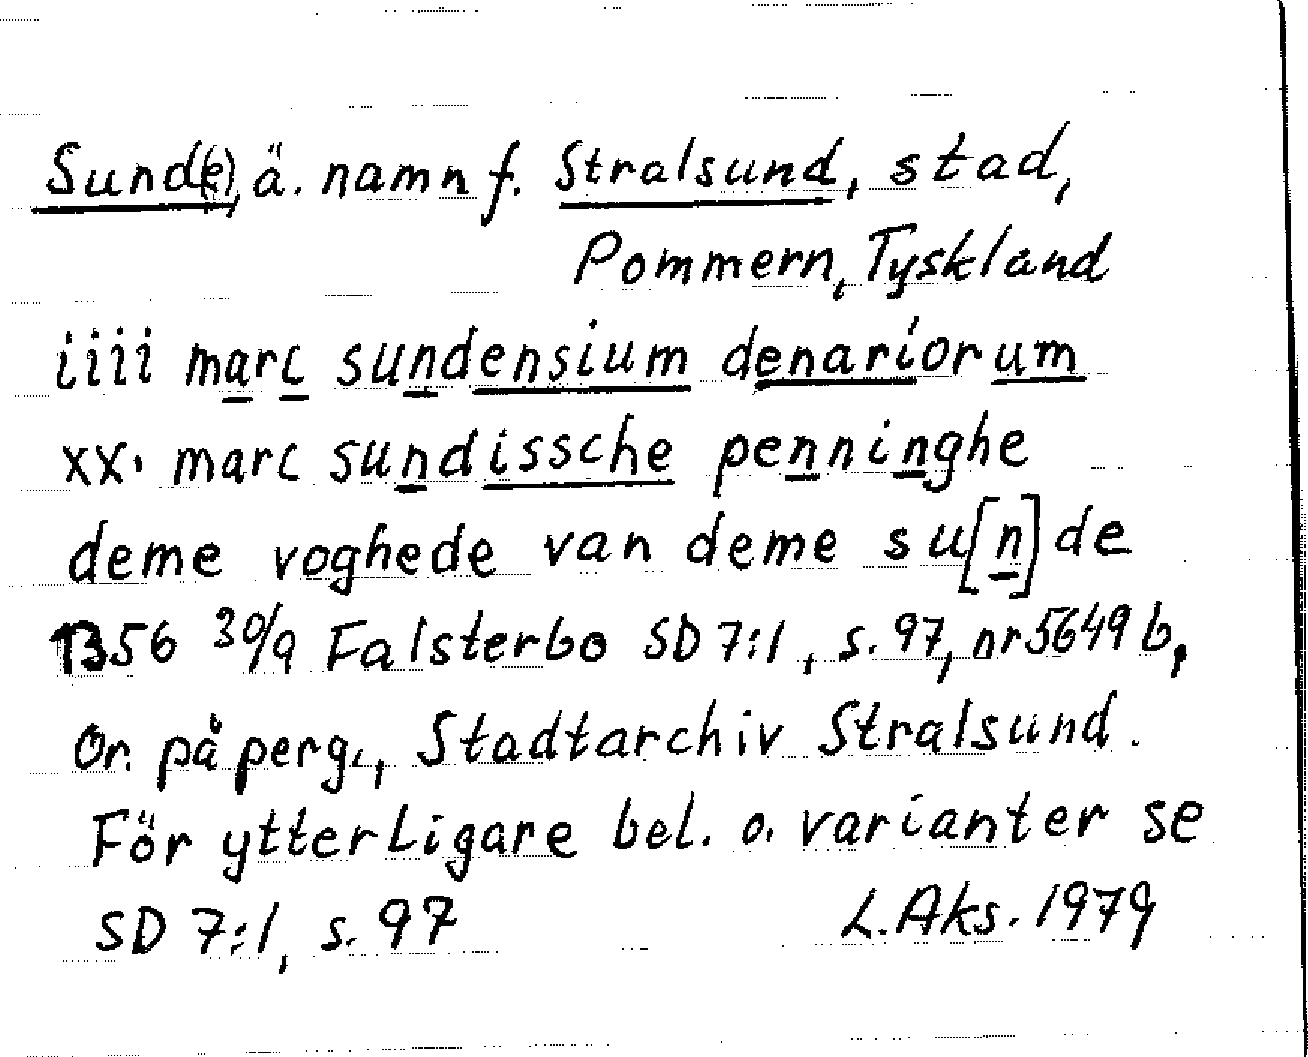 Sund(e), ä. namn f. Stralsund, stad,
Pommern, Tyskland
iiii marc sundensium denariorum
xx. marc sundissche penninghe
deme voghede van deme su[n]de
1356 30/9 Falsterbo SD 7:1, s. 97, nr 5649 b,
Or. på perg., Stadtarchiv Stralsund.
För ytterligare bel. o. varianter se
SD 7:1, s. 97 L. Aks. 1979